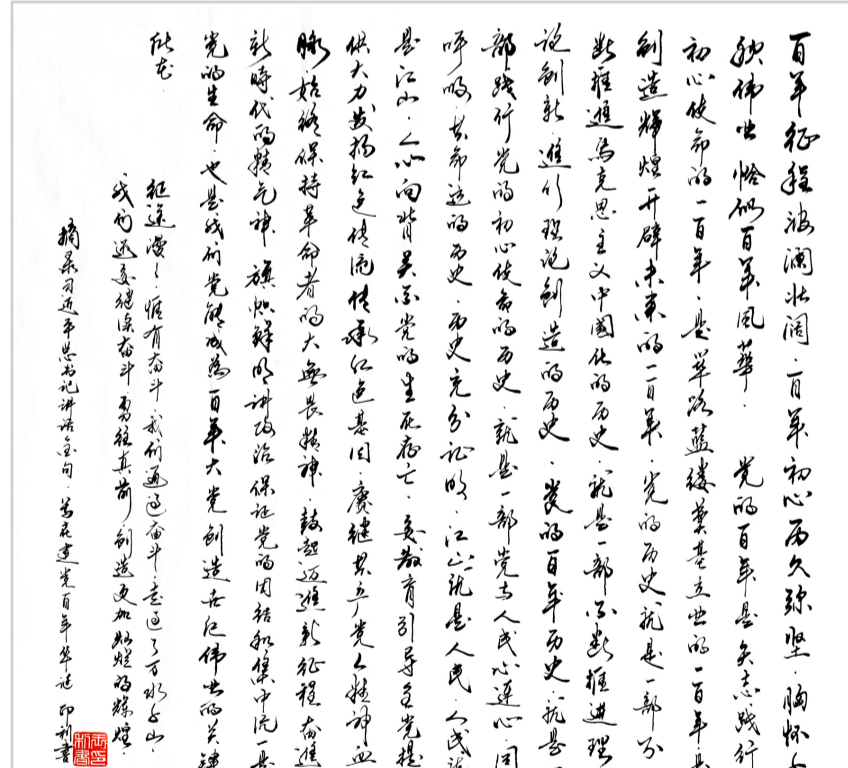 百年征程波澜壮阔.百年初心历久弥坚.胸怀千
秋伟业恰似百年风华.党的百年是矢志践行
初心使命的一百年.是筚路蓝缕奠基立业的一百年是
创造辉煌开辟未来的一百年.党的历史就是一部不
断推进马克思主义中国化的历史.就是一部不断推进理
论创新.进行理论创造的历史.党的百年历史.就是一
部践行党的初心使命的历史.就是一部党与人民心连心.同
呼吸.共命运的历史.历史充分证明.江山就是人民.人民就
是江山.人心向背关系党的生死存亡.要教育引导全党提
供大力发扬红色传统传承红色基因.赓续共产党人精神血
脉.始终保持革命者的大无畏精神.鼓起迈进新征程奋进
新時代的精气神.旗帜鲜明讲政治保证党的团结和集中统一是
党的生命.也是我们党能成为百年大党创造世纪伟业的关键
所在.
征途漫々.惟有奋斗.我们通过奋斗.走过了万水千山.
我们还要继续奋斗.勇往直前.创造更加灿烂的辉煌.
摘录习近平总书记讲话金句.写在建党百年华诞 印利書